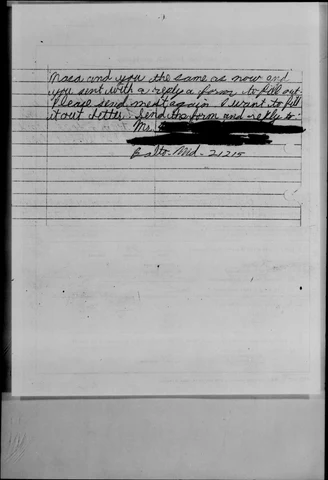 and you the same as now and
you sent with a reply a form to fill out.
Please send me it again I want to fill
it out better. Send the form and reply to:
Ms.
Balto. Md. 21215